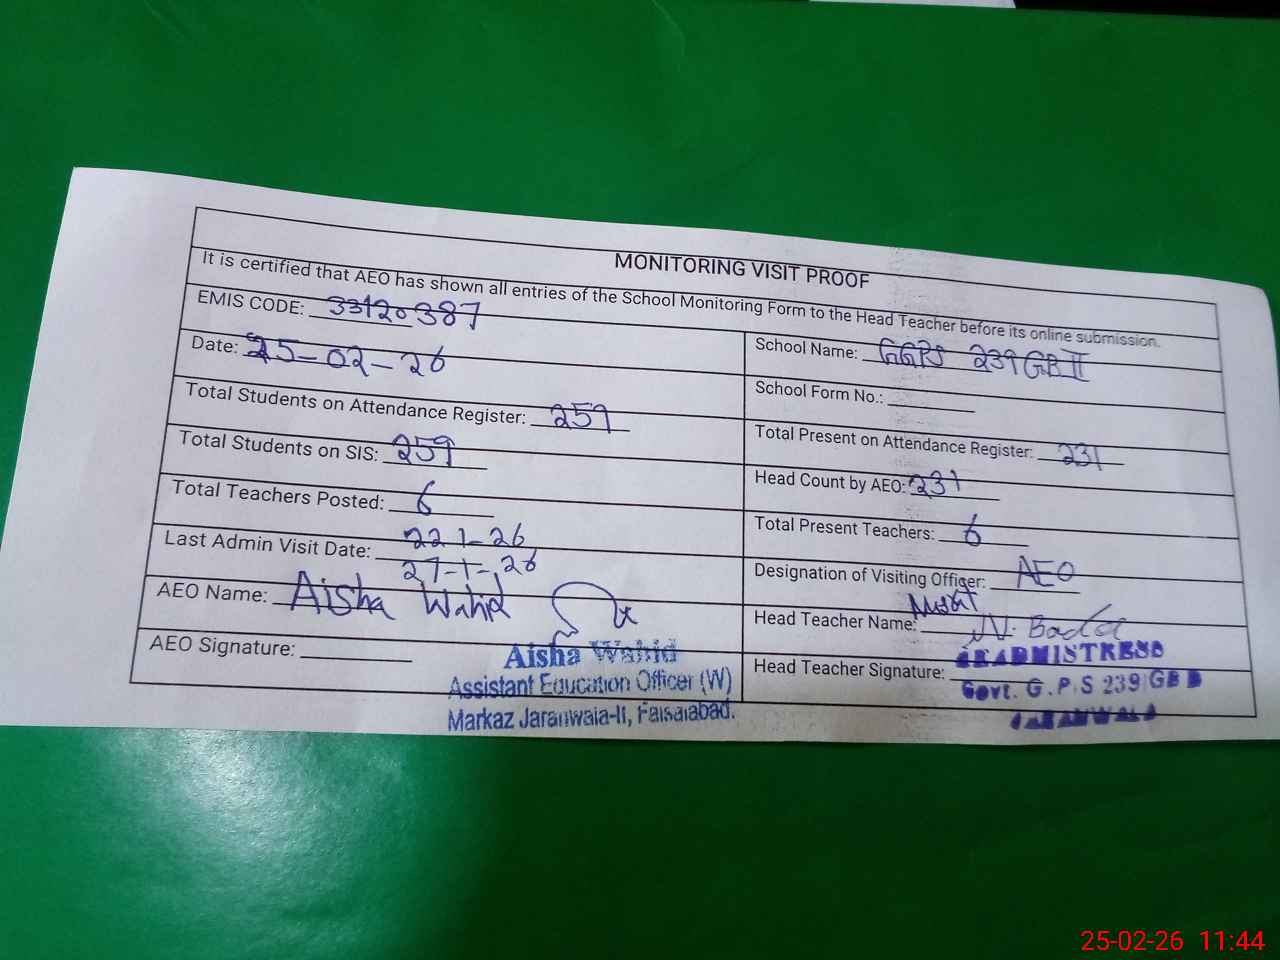 MONITORING VISIT PROOF
It is certified that AEO has shown all entries of the School Monitoring Form to the Head Teacher before its online submission.
EMIS CODE: 33120387
School Name: GGPS 239 GB II
Date: 25-02-26
School Form No.:
Total Students on Attendance Register: 259
Total Present on Attendance Register: 231
Total Students on SIS: 259
Head Count by AEO: 231
Total Teachers Posted: 6
Total Present Teachers: 6
Last Admin Visit Date: 22-1-26
27-1-26
Designation of Visiting Officer: AEO
AEO Name: Aisha Wahid
Head Teacher Name:
AEO Signature:
Aisha Wahid
Assistant Education Officer (W)
Markaz Jaranwala-II, Faisalabad.
Head Teacher Signature:
HEADMISTRESS
Govt. G.P.S 239 GB
JARANWALA
25-02-26 11:44